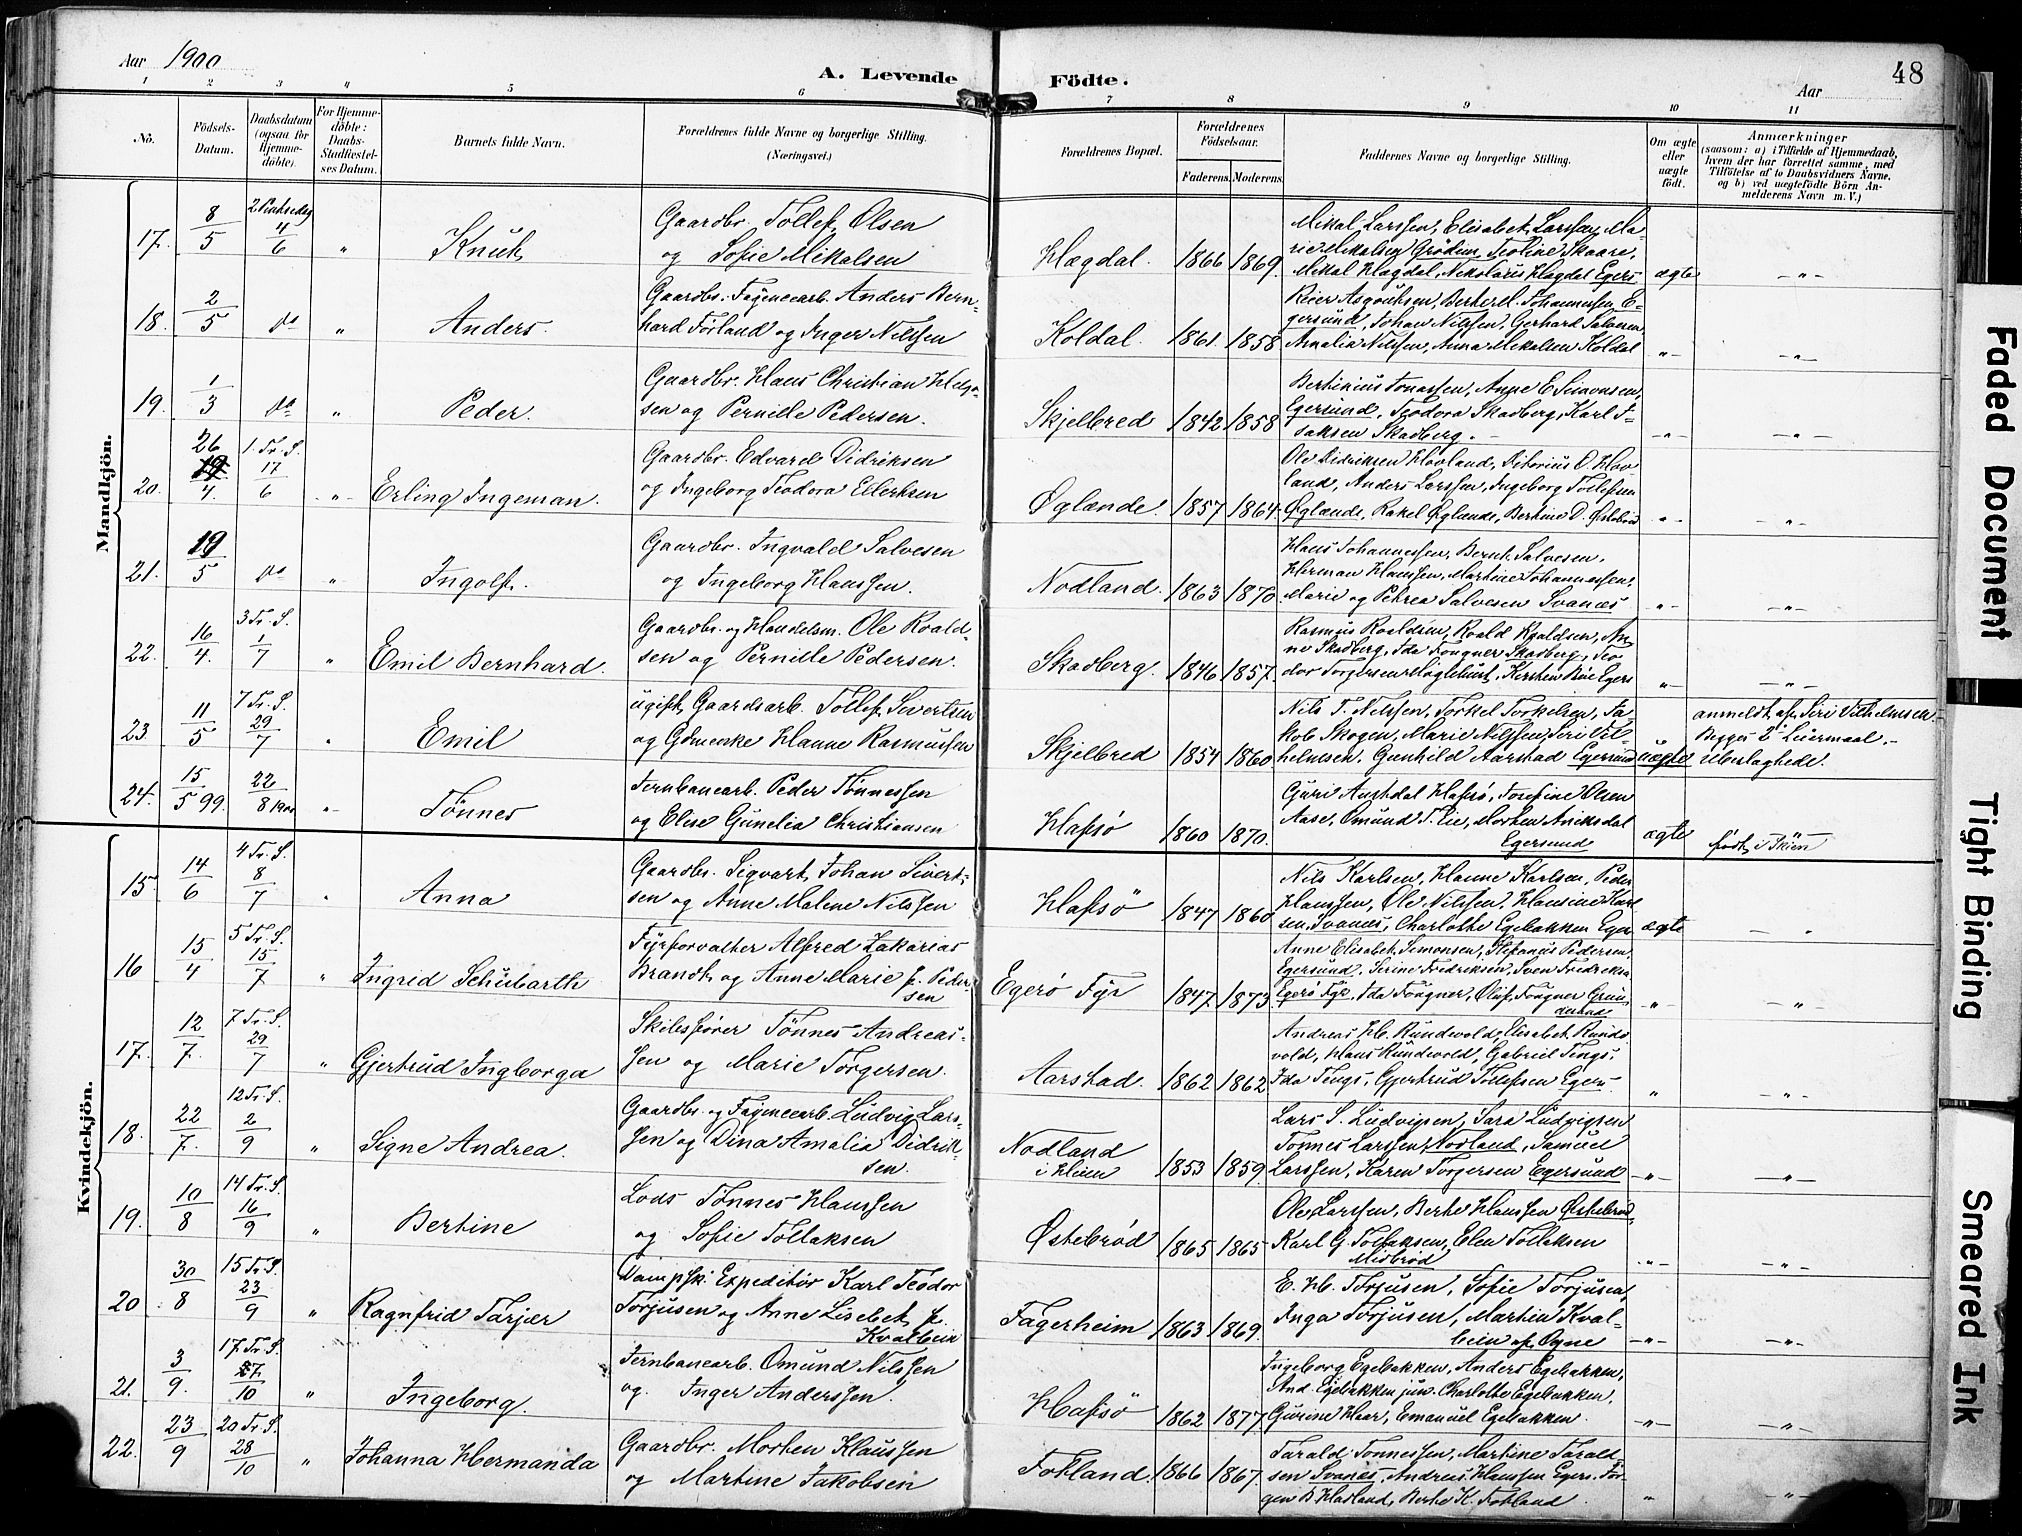 Aar 1900
A. Levende Födte.
Aar
48
1 2 3 4 5 6 7 8 9 10 11
No.
Födsels-Datum.
Daabsdatum (ogsaa for Hjemme-döbte).
For Hjemme-döbte: Daabs-Stadfæstel-ses Datum.
Barnets fulde Navn.
Forældrenes fulde Navne og borgerlige Stilling.
(Næringsvei.)
Forældrenes Bopæl.
Forældrenes Födselsaar.
Faderens. Moderens.
Faddernes Navne og borgerlige Stilling.
Om ægte eller uægte födt.
Anmærkninger
(saasom: a) i Tilfælde af Hjemmedaab,
hvem der har forrettet samme, med
Tilföielse af to Daabsvidners Navne.
og b) ved uægtefödte Börn An-
melderens Navn m. V.)
Mandkjön.
17. 8/5 2 Pintsedag 4/6 " Knut Gaardbr. Tollef Olsen
og Sofie Mikalsen Hægdal. 1866 1869. ægte -"-
Mikal Larssen, Elisabet Larssen, Ma-
rie Mikalsen Grødem, Teoline Skaare,
Mikal Hægdal, Nikolaus Hægdal Egers
18. 2/5 do " Anders. Gaardbr. Fayencearb. Anders Bern-
hard Forland og Inger Nilssen Koldal. 1861. 1858 -"- -"-
Reier Asgoutsen, Berte M. Johannessen, E-
gersund, Johan Nilssen, Gerhard Salvesen,
Amalia Nilssen, Anna Mikalsen Koldal
19. 1/3 do " Peder. Gaardbr. Hans Christian Helge-
sen og Pernille Pedersen. Skjelbred 1842 1858 -"- -"-
Bertinius Jonassen, Anne E Simonsen,
Egersund, Teodora Skadberg, Karl I-
saksen Skadberg.
20. 26/4 1. Tr. S. 17/6 -"- Erling Ingeman. Gaardbr. Edvard Didriksen
og Ingeborg Teodora Eilertsen Øglænde 1857 1864. -"- -"-
Ole Didriksen Hovland, Ditorius O. Hov
land, Anders Larssen, Ingeborg Tollefsen
Øglænde, Rakel Øglænde, Bertine D. Østebrød
21. 19/5 do " Ingolf. Gaardbr. Ingvald Salvesen
og Ingeborg Hanssen. Nodland. 1863 1870. -"- -"-
Hans Johannessen, Bernt Salvesen,
Herman Hanssen, Martine Johannessen,
Marie og Petrea Salvesen Svanæs
22. 16/4. 3 Tr. S. 1/7 " Emil Bernhard. Gaardbr. og Handelsm. Ole Roald-
sen og Pernille Pedersen. Skadberg. 1846 1857. -"- -"-
Rasmus Roaldsen, Roald Roaldsen, An-
ne Skadberg, Ida Fougner Skadberg, Teo-
dor Torgersen Møglehust, Kersten Bøe Egers
23. 11/5 7 Tr. S. 29/7 " Emil ugift, Gaardsarb. Tollef Sivertsen
og Gdmenke Hanne Rasmussen Skjelbred 1854 1860 uægte
Nils T. Nilssen, Torkel Torkelsen, Ja-
kob Skogen, Marie Nilssen, Siri Vil-
helmsen, Gunhild Aarstad Egersund
anmeldt af Siri Vilhelmsen.
Begges 2' Leiermaal. -
Ubeslægtede.
24. 15/5 99. 22/8 1900 -"- Tönnes Jernbanearb. Peder Tönnessen
og Elise Gunelia Christiansen Hafsö 1860 1870. ægte
Guri Austdal Hafsö, Josefine Olsen
Aase, Omund T. Eie, Morten Aniksdal
Egersund
födt i Skien
Kvindekjön.
15. 14/6 4 Tr. S. 8/7 " Anna Gaardbr. Sigvart Johan Sivert-
sen og Anne Malene Nilssen Hafsö 1847 1860 ægte -"-
Nils Karlsen, Hanne Karlsen, Peder
Hanssen, Ole Nilssen, Hansine Karl
sen Svanæs, Charlotte Egebakken Egers
16 15/4 5 Tr. S. 15/7 " Ingrid Schubarth Fyrforvalter Alfred Zakarias
Brandt og Anne Marie f. Peder-
sen Egerö Fyr 1847. 1873. " "
Anne Elisabet Simonsen, Stefanus Pedersen,
Egersund, Serine Fredriksen, Sven Fredriksen
Egerö Fyr, Ida Fougner, Oluf Fougner Grun-
destad
17. 12/7. 7 Tr. S. 29/7 " Gjertrud Ingborga Skibsförer Tönnes Andreas-
sen og Marie Torgersen. Aarstad. 1862 1862 " -"-
Andreas Hb. Rundvold, Elisabet Runds-
vold, Hans Rundvold, Gabriel Tengs,
Ida Tengs, Gjertrud Tollefsen Egers
18. 22/7. 12 Tr. S. 2/9 " Signe Andrea. Gaardbr. og Fayencearb. Ludvig Lars-
sen og Dina Amalia Didrik-
sen. Nodland
i Heien 1853 1859. -"- -"-
Lars S. Ludvigsen, Sara Ludvigsen
Tönnes Larssen, Nodland, Samuel
Larssen, Karen Torgersen Egersund
19. 10/8 14 Tr. S. 16/9 " Bertine Lods Tönnes Hanssen
og Sofie Tollaksen Østebrød 1865 1865 -"- -"-
Ole Larssen, Berte Hanssen Østebrød,
Karl G. Tollaksen, Elen Tollaksen
Midbrød
20 30/8 15 Tr. S. 23/9 " Ragnfrid Tarjær Dampsk. Expeditör Karl Teodor
Torjusen og Anne Lisebet f.
Kvalbein Fagerheim 1863 1869. -"- -"-
E. Hb. Torjusen, Sofie Torjusen,
Inga Torjusen, Martin Kval-
bein af Ogne
21. 3/9. 17 Tr. S. 7/10 " Ingeborg. Jernbanearb. Omund Nilssen
og Inger Anderssen. Hafsö 1862 1877 " -"-
Ingeborg Egebakken, Anders Egebakken,
And. Egebakken jun. Charlotte Egebakken,
Gurine Haar, Emanuel Egebakken.
22. 23/9 20 Tr. S. 28/10 " Johanna Hermanda Gaardbr. Morten Klaussen
og Martine Jakobsen Fotland. 1866 1867. " -"-
Tarald Tönnessen, Martine Tarald-
sen Svanes, Andreas Hanssen Egers. Tor-
gen B Hadland, Berte K. Fotland
Faded Document
Tight Binding
Smeared Ink